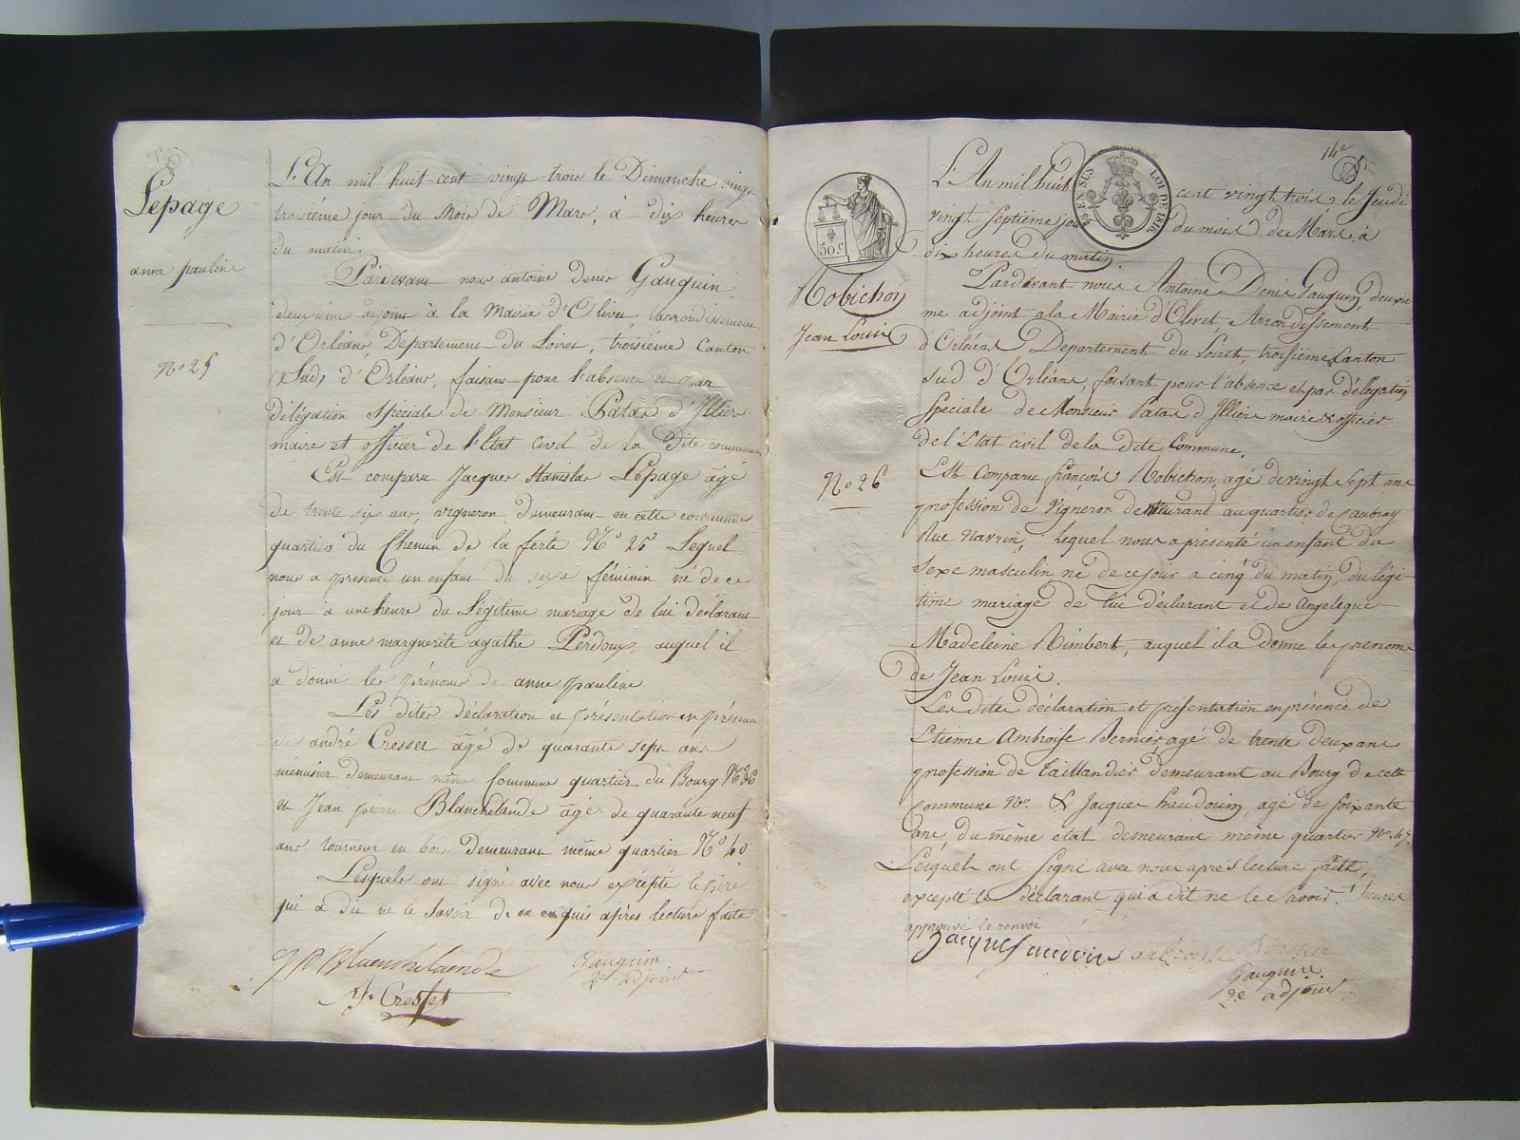 Lepage
anne pauline
No 25
L'An mil huit cent vingt trois le Dimanche vingt
troisième jour du Mois de Mars, à dix heures
du matin.
Pardevant nous antoine Denis Gauguin
deuxième adjoint à la Mairie d'Olivet arrondissement
d'Orléans, Departement du Loiret, troisième Canton
(Sud) d'Orléans, faisant pour l'absence et par
délégation spéciale de Monsieur Patas d'Illiers
maire et officier de l'Etat Civil de la Dite commune
Est comparu Jacques Stanislas Lepage âgé
de trente six ans, vigneron demeurant en cette commune
quartier du Chemin de la ferté No 25 Lequel
nous a présenté un enfant du sexe féminin né de ce
jour à une heure du Légitime mariage de lui déclarant
et de anne marguerite agathe Perdoux, auquel il
a donné les prénoms de anne pauline
Les dites déclaration et présentation en présence
de andré Crosset âgé de quarante sept ans
ménusier demeurant même Commune quartier du Bourg No 36
et Jean pierre Blanchelande âgé de quarante neuf
ans tourneur en bois Demeurant même quartier No 40
Lesquels ont signé avec nous excepté le père
qui a dit ne le savoir de ce enquis après lecture faite
JP Blanchelande
Gauguin
2e adjoint
Crosset
14e
50c
EN SUS
LOI DE 1816
Robichon
Jean Louis
No 26
L'An mil huit cent vingt trois, le Jeudi
vingt septième jour du mois de Mars, à
dix heures du matin.
Pardevant nous Antoine Denis Gauguin, deuxie
me adjoint a la Mairie d'Olivet, Arrondissement
d'Orléans Departement du Loiret, troisième Canton
Sud d'Orléans, faisant pour l'absence et par délégation
Speciale de Monsieur Patas d'Illiers maire & officier
de l'Etat civil de la dite Commune.
Est Comparu françois Robichon, agé de vingt sept ans
profession de vigneron demeurant au quartier de
Rue, lequel nous a présenté un enfant du
Sexe masculin né de ce jour a cinq du matin, du légi-
time mariage de lui déclarant et de Angelique
Madeleine Rimbert, auquel il a donné les prénoms
de Jean Louis.
Les dites déclaration et présentation en présence de
Etienne Ambroise Bernier agé de trente deux ans
profession de Taillandier demeurant au Bourg de cette
commune No. & Jacques haudouin, agé de soixante
ans, du même etat demeurant même quartier No 47
Lesquels ont signé avec nous après lecture faite,
excepté le déclarant qui a dit ne le savoir.
approuvé le renvoi
Jacques haudouin
Gauguin
2e adjoint